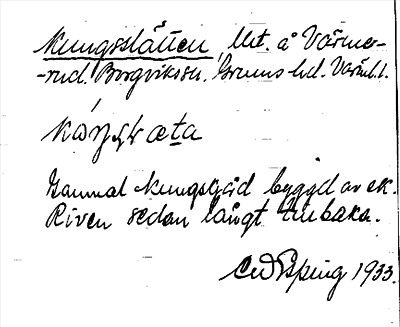 Kungsslätten, Utt. å Värme-
-rud. Borgvikssn. Grums hd. Värml.
Gammal kungsgård byggd av ek.
Riven sedan långt tillbaka.
1933.